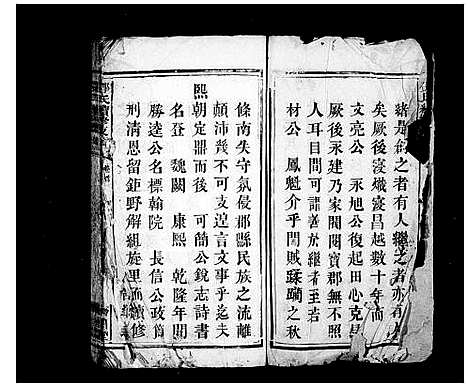 緒是創之者有人繼之者亦有人
矣厥後寖熾寖昌越數十年而
文亮公 永旭公復起田心克昌
厥後永建乃家閥閱寶郡無不照
人耳目間可謂善於繼者至若
材公 鳳魁介乎闖賊蹂躪之秋
條南失守氛侵郡縣民族之流離
顛沛幾不可支遑言文事乎迨夫
熙朝定鼎而後 可簡公銳志詩書
名登 魏闕 康熙 乾隆年間
勝達公名標翰院 長信公政簡
刑清恩留鉅野解組旋里而續修